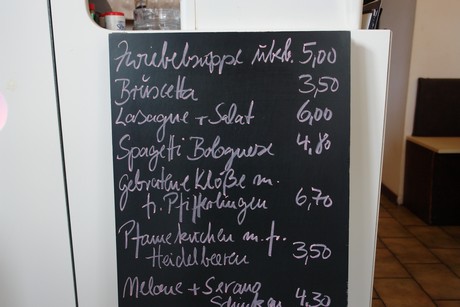 Zwiebelsuppe überb. 5,00
Brüscetta 3,50
Lasagne + Salat 6,00
Spagetti Bolognese 4,80
gebratene Klöße m.
fr. Pfifferlingen 6,70
Pfannekuchen m. fr.
Heidelbeeren 3,50
Melone + Serano
Schinken 4,30